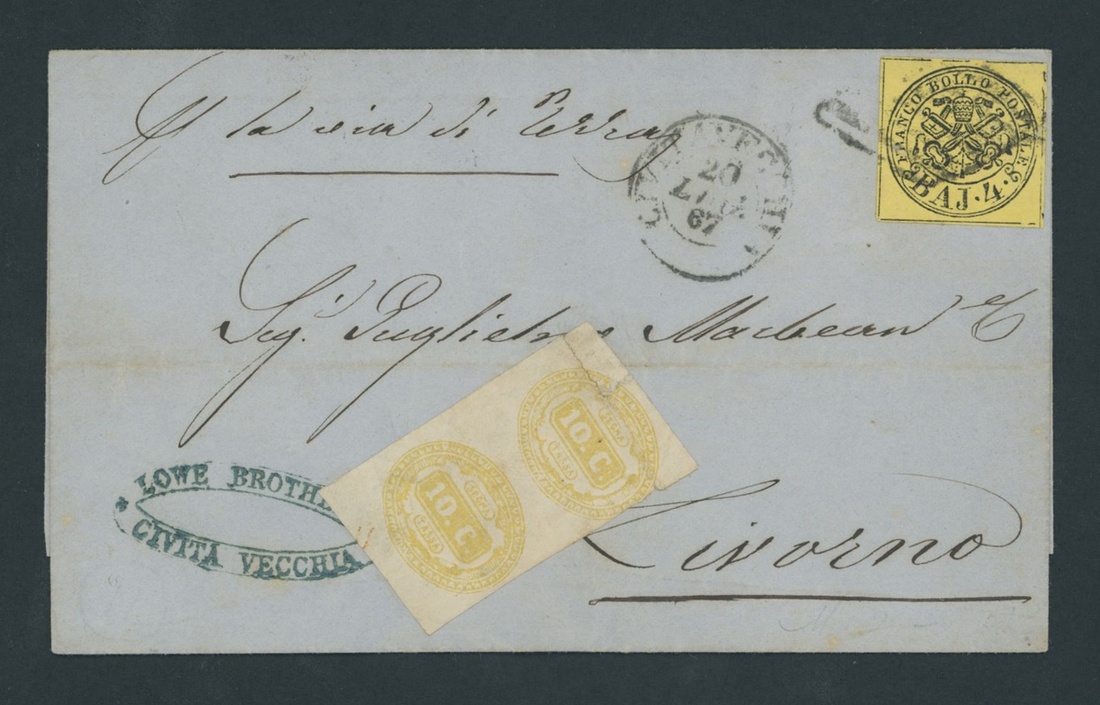 la via di Terra
CIVITAVECCHIA
20
67
FRANCO BOLLO POSTALE
BAJ. 4.
Sig. Guglielmo Macbean &
10. C.
SEGNA
TASSE
10. C.
SEGNA
TASSE
LOWE BROTHE
CIVITA VECCHIA
Livorno